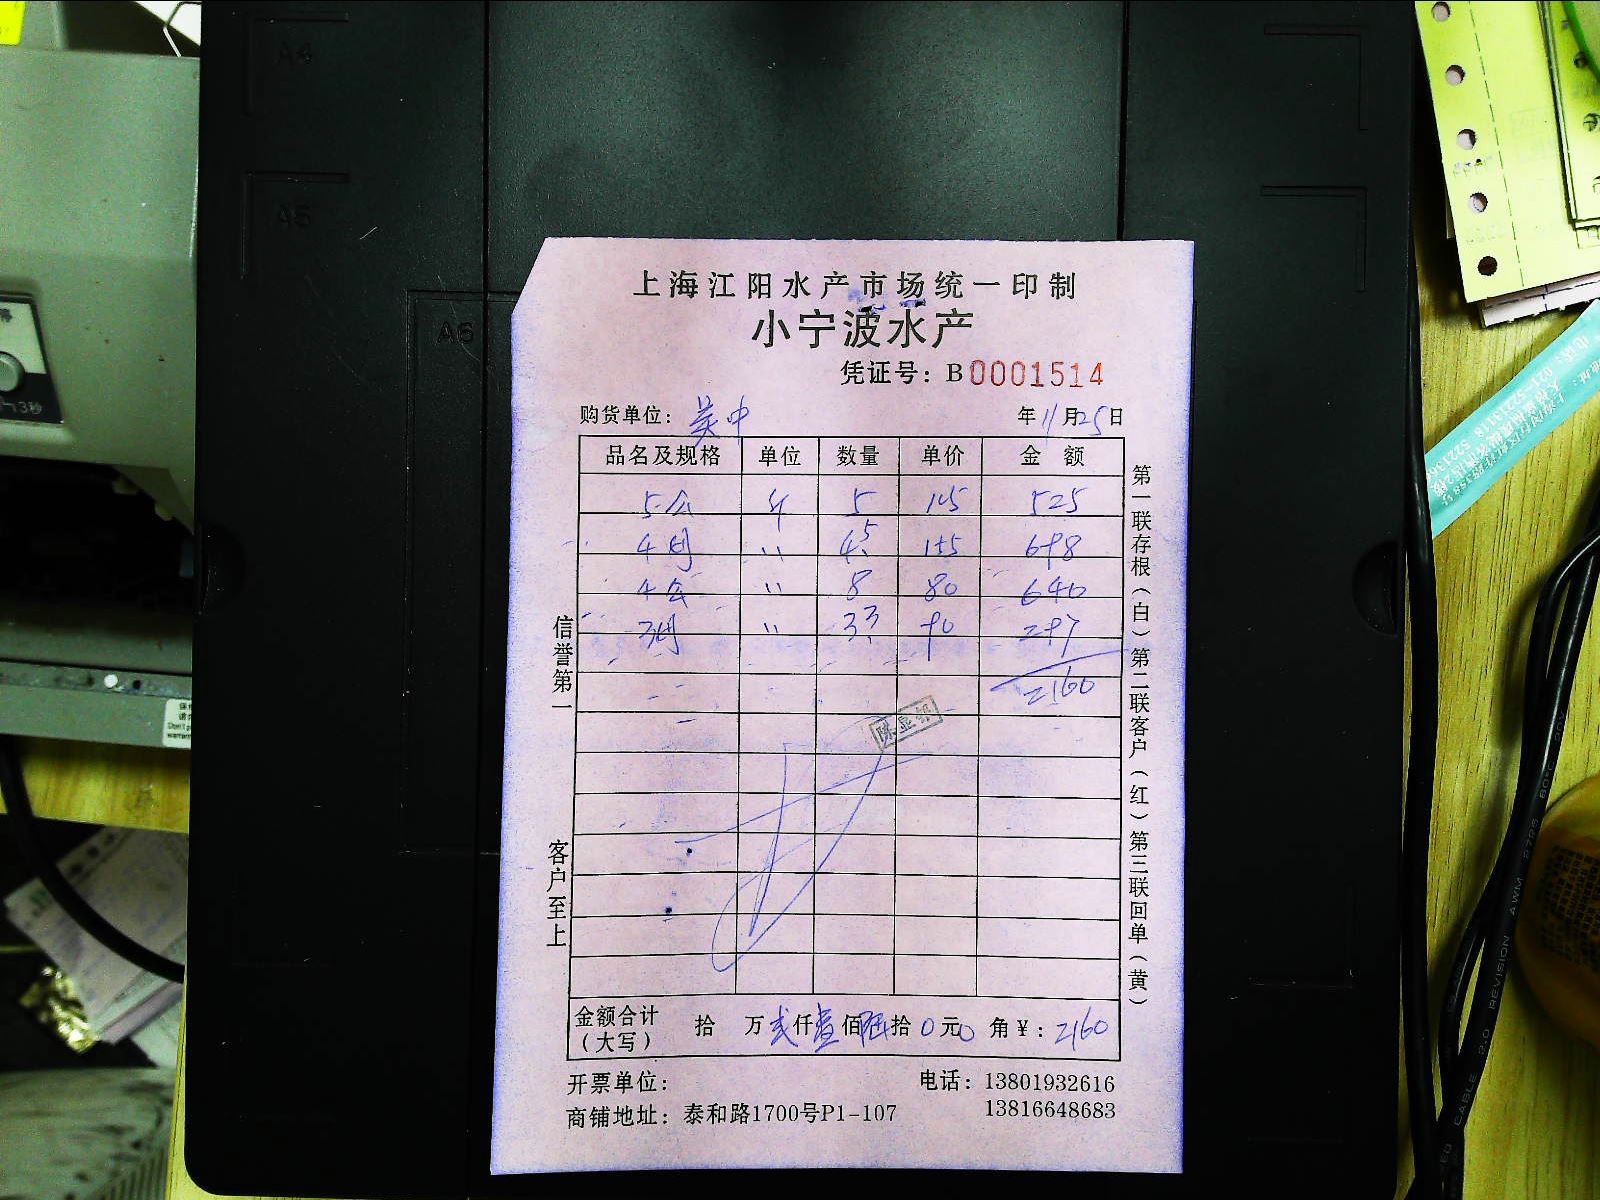 上海江阳水产市场统一印制
小宁波水产
凭证号：B0001514
购货单位：吴中
年11月25日
品名及规格 单位 数量 单价 金额
5公 斤 5 105 525
4母 〃 4.5 155 698
4公 〃 8 80 640
3母 〃 3.3 90 297
2160
金额合计（大写） 拾 万贰仟壹佰陆拾0元0角￥：2160
开票单位：
电话：13801932616
13816648683
商铺地址：泰和路1700号P1-107
信誉第一
客户至上
第一联存根（白）第二联客户（红）第三联回单（黄）
A4
A5
A6